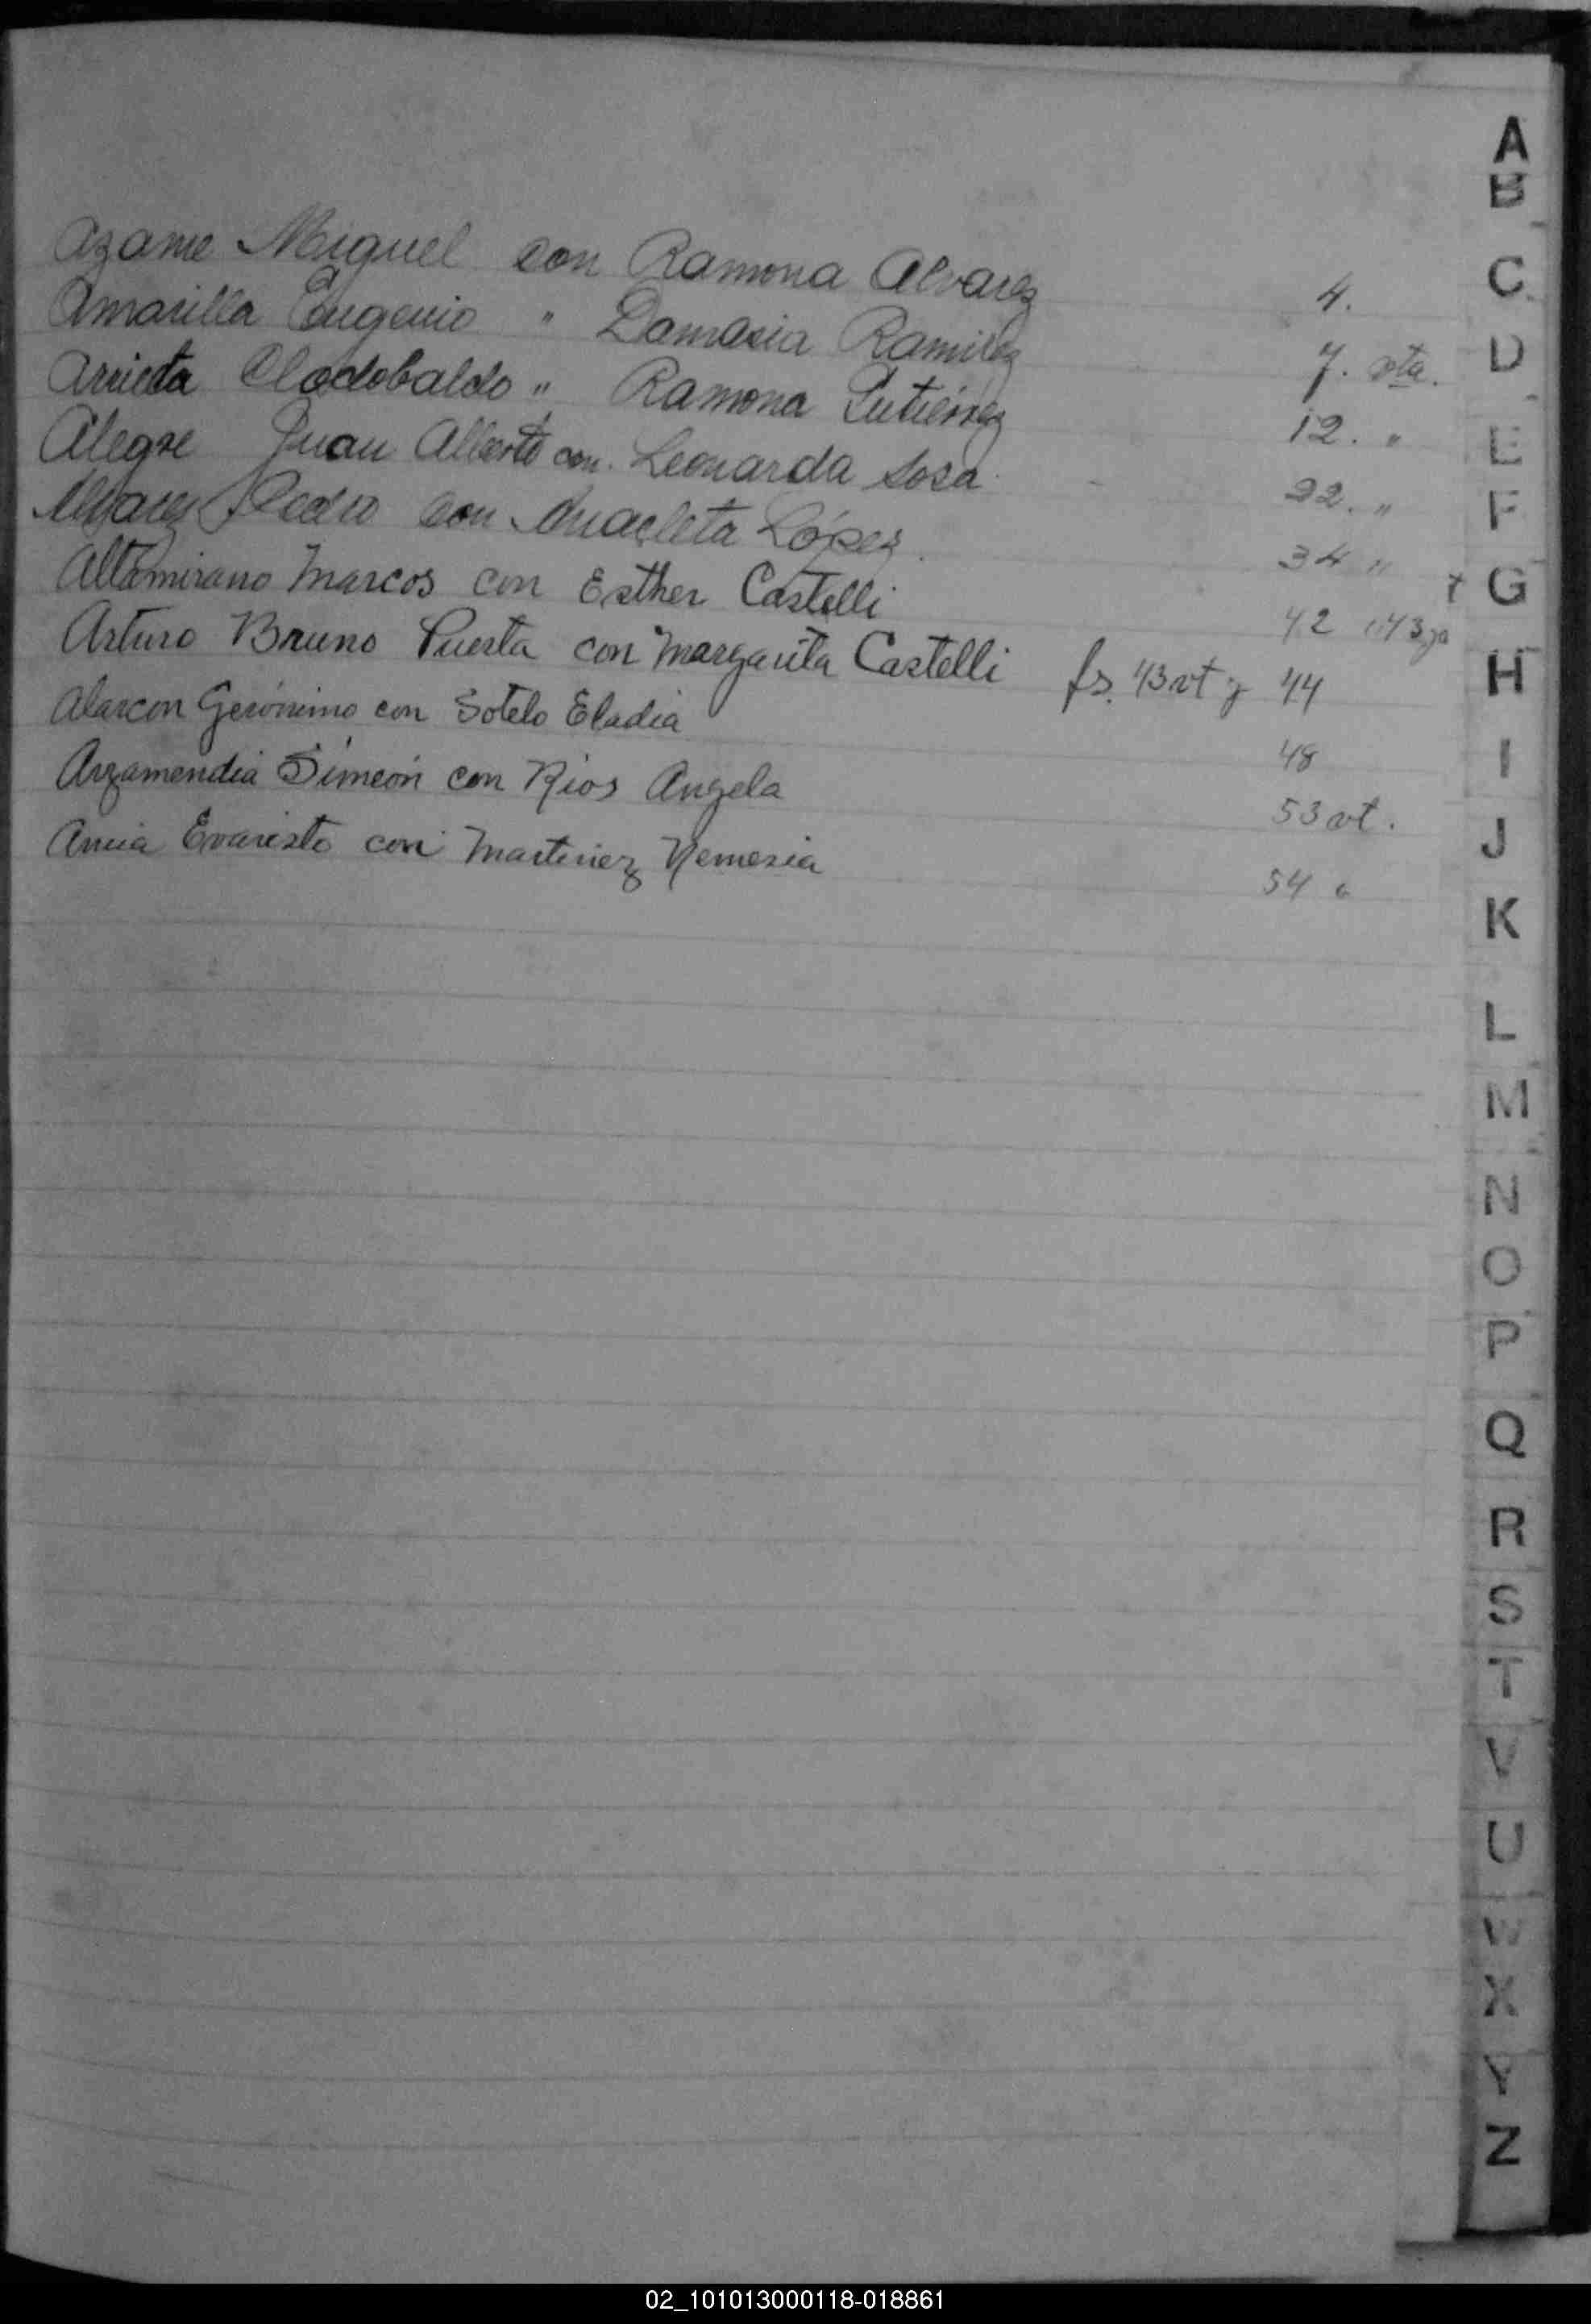 Azame Miguel con Ramona Alvarez 4.
Amarilla Eugenio " Damasia Ramirez 7. vta.
Arrieta Clodobaldo " Ramona Gutiérrez 12. "
Alegre Juan Alberto con Leonarda Sosa 22. "
Alvarez Pedro con Anacleta López. 34 "
Altamirano Marcos con Esther Castelli 42
Arturo Bruno Puerta con Margarita Castelli fs. 43 vt y 44
Alarcon Gerónimo con Sotelo Eladia 48
Arzamendia Simeón con Rios Angela 53 vt.
Evaristo con Martinez Nemesia 54
A
B
C
D
E
F
G
H
I
J
K
L
M
N
O
P
Q
R
S
T
V
U
W
X
Y
Z
02_101013000118-018861